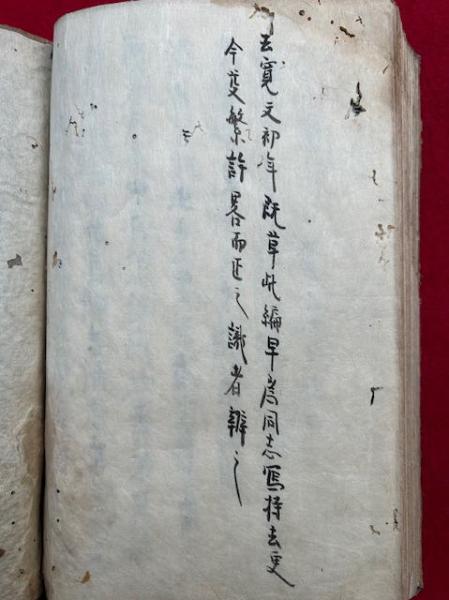 去寛文初年既草此編早為同志寫持去更
今芟繁討畧而正之識者辯之